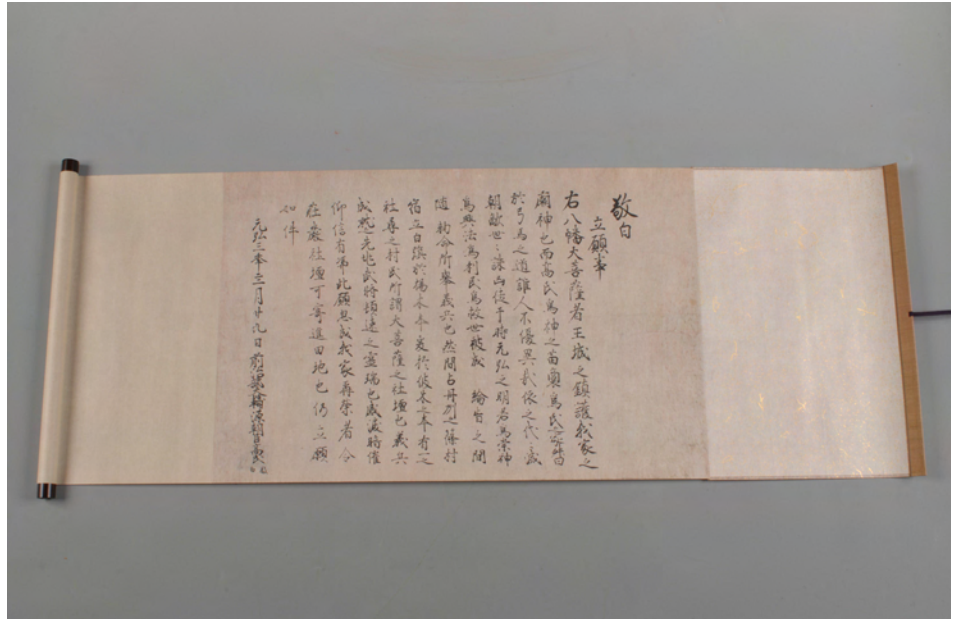 敬白
立願事
右八幡大菩薩者王城之鎮護我家之
廟神也而高氏為神之苗裔為氏之家督
於弓馬之道誰人不優異哉依之代〻滅
朝敵世〻誅凶徒于時元弘之明君為崇神
為興法為利民為救世被成　綸旨之間
随　勅命所挙義兵也然間占丹州之篠村
宿立白旗於楊木本爰於彼木之本有一之
社尋之村民所謂大菩薩之社壇也義兵
成就之先兆武将頓速之霊瑞也感涙暗催
仰信有憑此願忽成我家再栄者令
荘厳社壇可寄進田地也仍立願
如件
元弘三年四月廿九日　前治部大輔源朝臣高氏